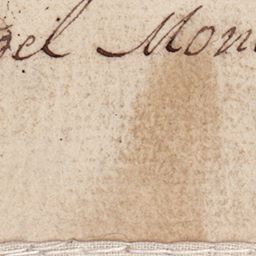 del Mon